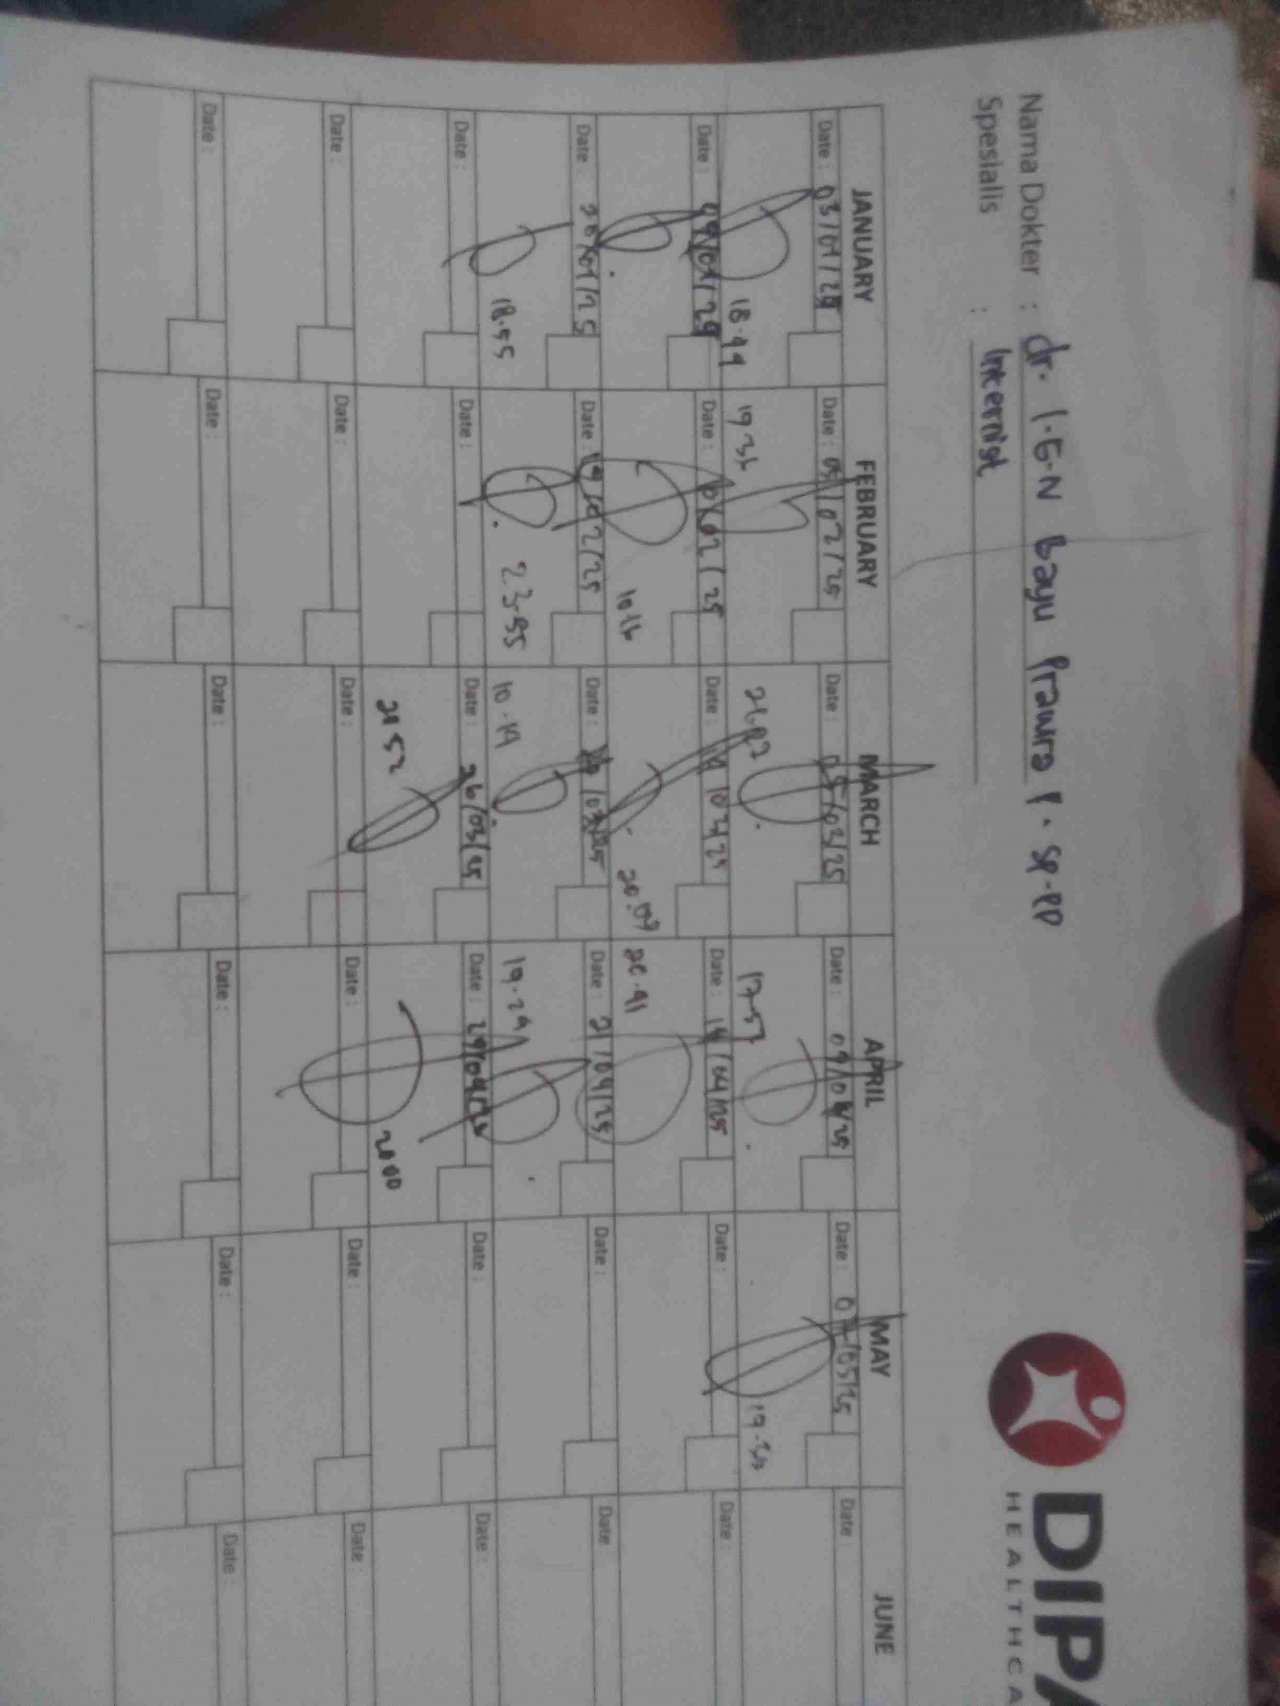 DIPA
HEALTHCA
Nama Dokter : dr. I.G.N Bayu Prawira P. SP.PD
Spesialis : Internist
JANUARY FEBRUARY MARCH APRIL MAY JUNE
Date : 03/01/25 Date : 05/02/25 Date : 05/03/25 Date : 09/04/25 Date : 07/05/25 Date :
18.44 19 36 17.57 19.30
Date : 09/01/25 Date : /02/25 Date : Date : 14/04/25 Date : Date :
10.16 20.09 20.41
Date : 20/01/25 Date : 19/02/25 Date : /03/25 Date : 21/04/25 Date : Date
18.55 23.55 10.19 19.29
Date : Date : Date : 26/03/25 Date : 29/04/25 Date : Date :
21 52 20 00
Date : Date : Date : Date : Date : Date :
Date : Date : Date : Date : Date : Date :